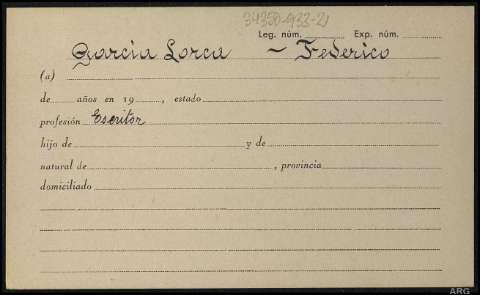 34350-933-21
Leg. núm. Exp. núm.
Garcia Lorca - Federico
(a)
de años en 19 , estado
profesión Escritor
hijo de y de
natural de , provincia
domiciliado
ARG